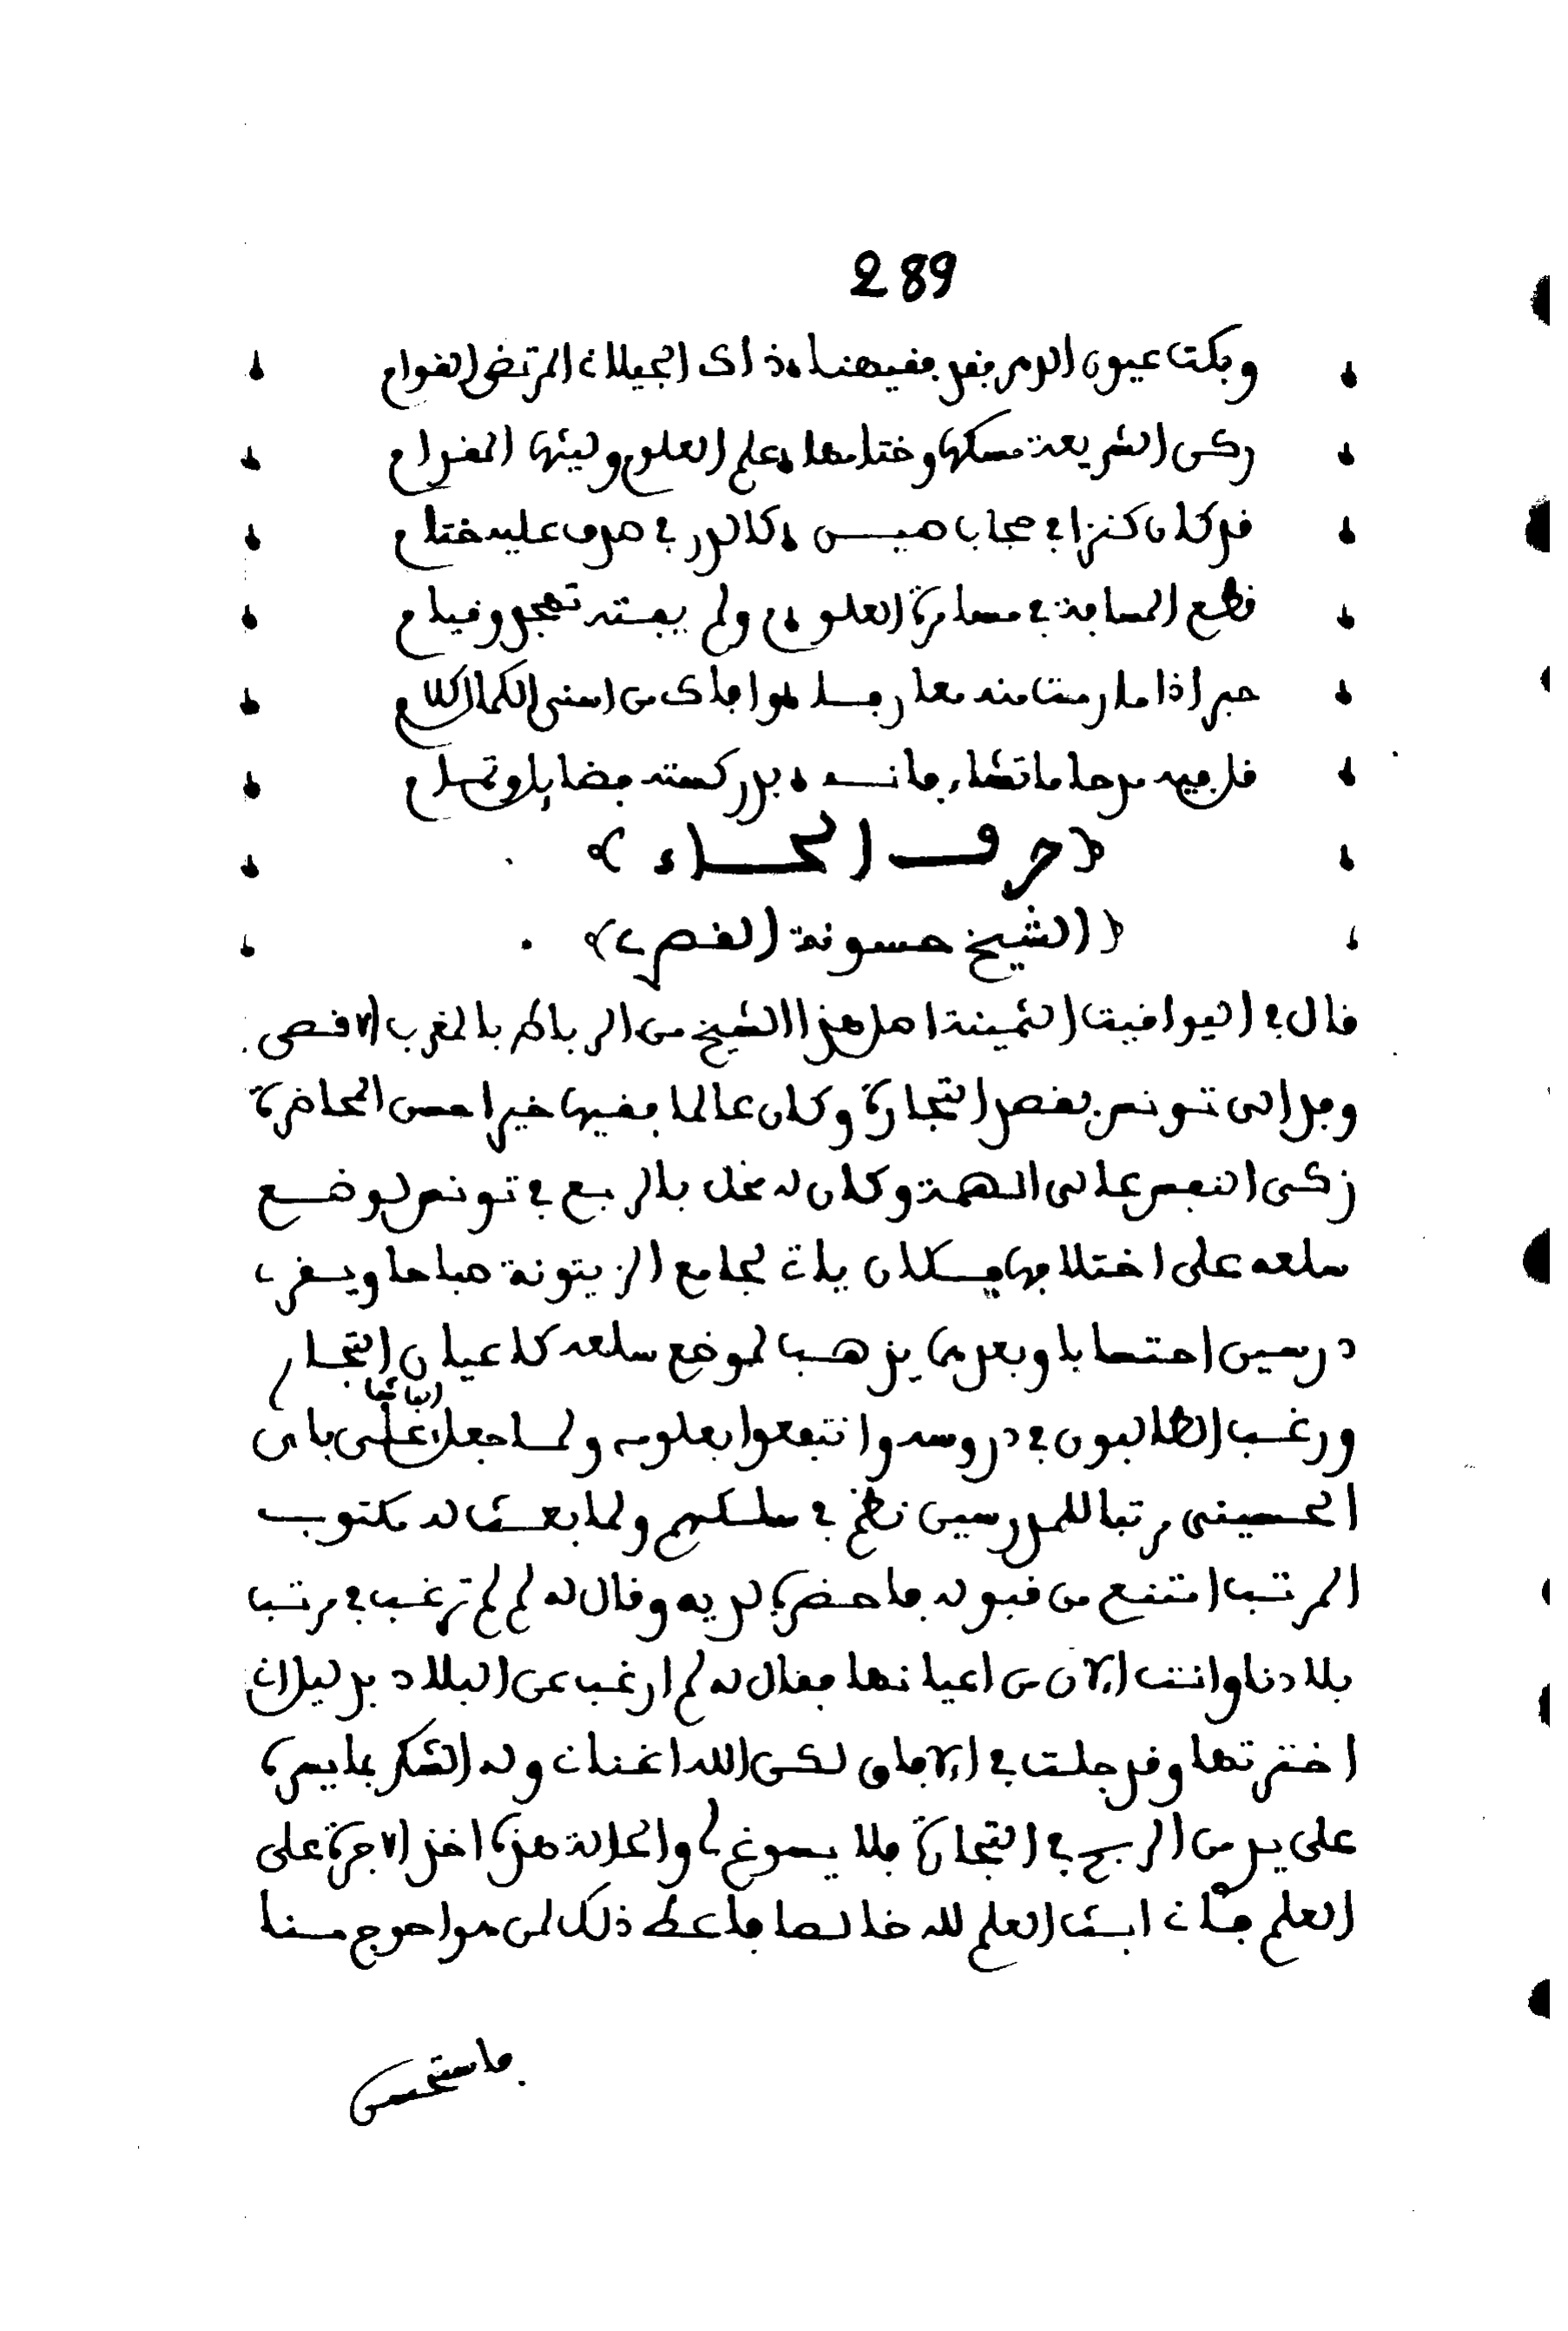 289
وبكت عيون الدهر بفقد فقيهنا ، ذاك الجيلاني المرتضى القوام
ركن الشريعة مسكها وختامها ، علم العلوم وليثها المقدام
قد كان كنزا في حجاب حبس ، كالدر في صدف عليه ختام
قطع المسافة في مسامرة العلوم ، ولم يفته تهجد وقيام
حبر اذا ما رمت منه معارفا ، وافاك من اسنى الكمال كلام
قل فيه مدحا ما تشاء فانه ، بدر كسته فضايل وتمام
﴿حرف الحاء﴾
﴿الشيخ حسونة القصري﴾
قال في اليواقيت الثمينة اصل هذا الشيخ من الرباط بالمغرب الاقصى
وفد الى تونس بقصد التجارة وكان عالما فقيها خيرا حسن المحاضرة
زكي النفس عالي الهمة وكان له محل بالربع في تونس لوضع
سلعه على اختلافها فكان ياتي لجامع الزيتونة صباحا ويقري
درسين احتسابا وبعدهما يذهب لموضع سلعه كاعيان التجار
ورغب الطالبون في دروسه وانتفعوا بعلومه ولما جعل الباشا علي باي
الحسيني مرتبا للمدرسين نظم في سلكهم ولما بعث له مكتوب
المرتب امتنع من قبوله فاحضره لديه وقال له لم لم ترغب في مرتب
بلادنا وانت الان من اعيانها فقال له لم ارغب عن البلاد بدليل اني
اخترتها وقد جلت في الافاق لكن الله اغناني وله الشكر بما يسره
على يدي من الربح في التجارة فلا يسوغ لي والحالة هذه اخذ الاجرة على
العلم فاني ابث العلم لله خالصا فاعط ذلك لمن هو احوج منا
فاستحسن